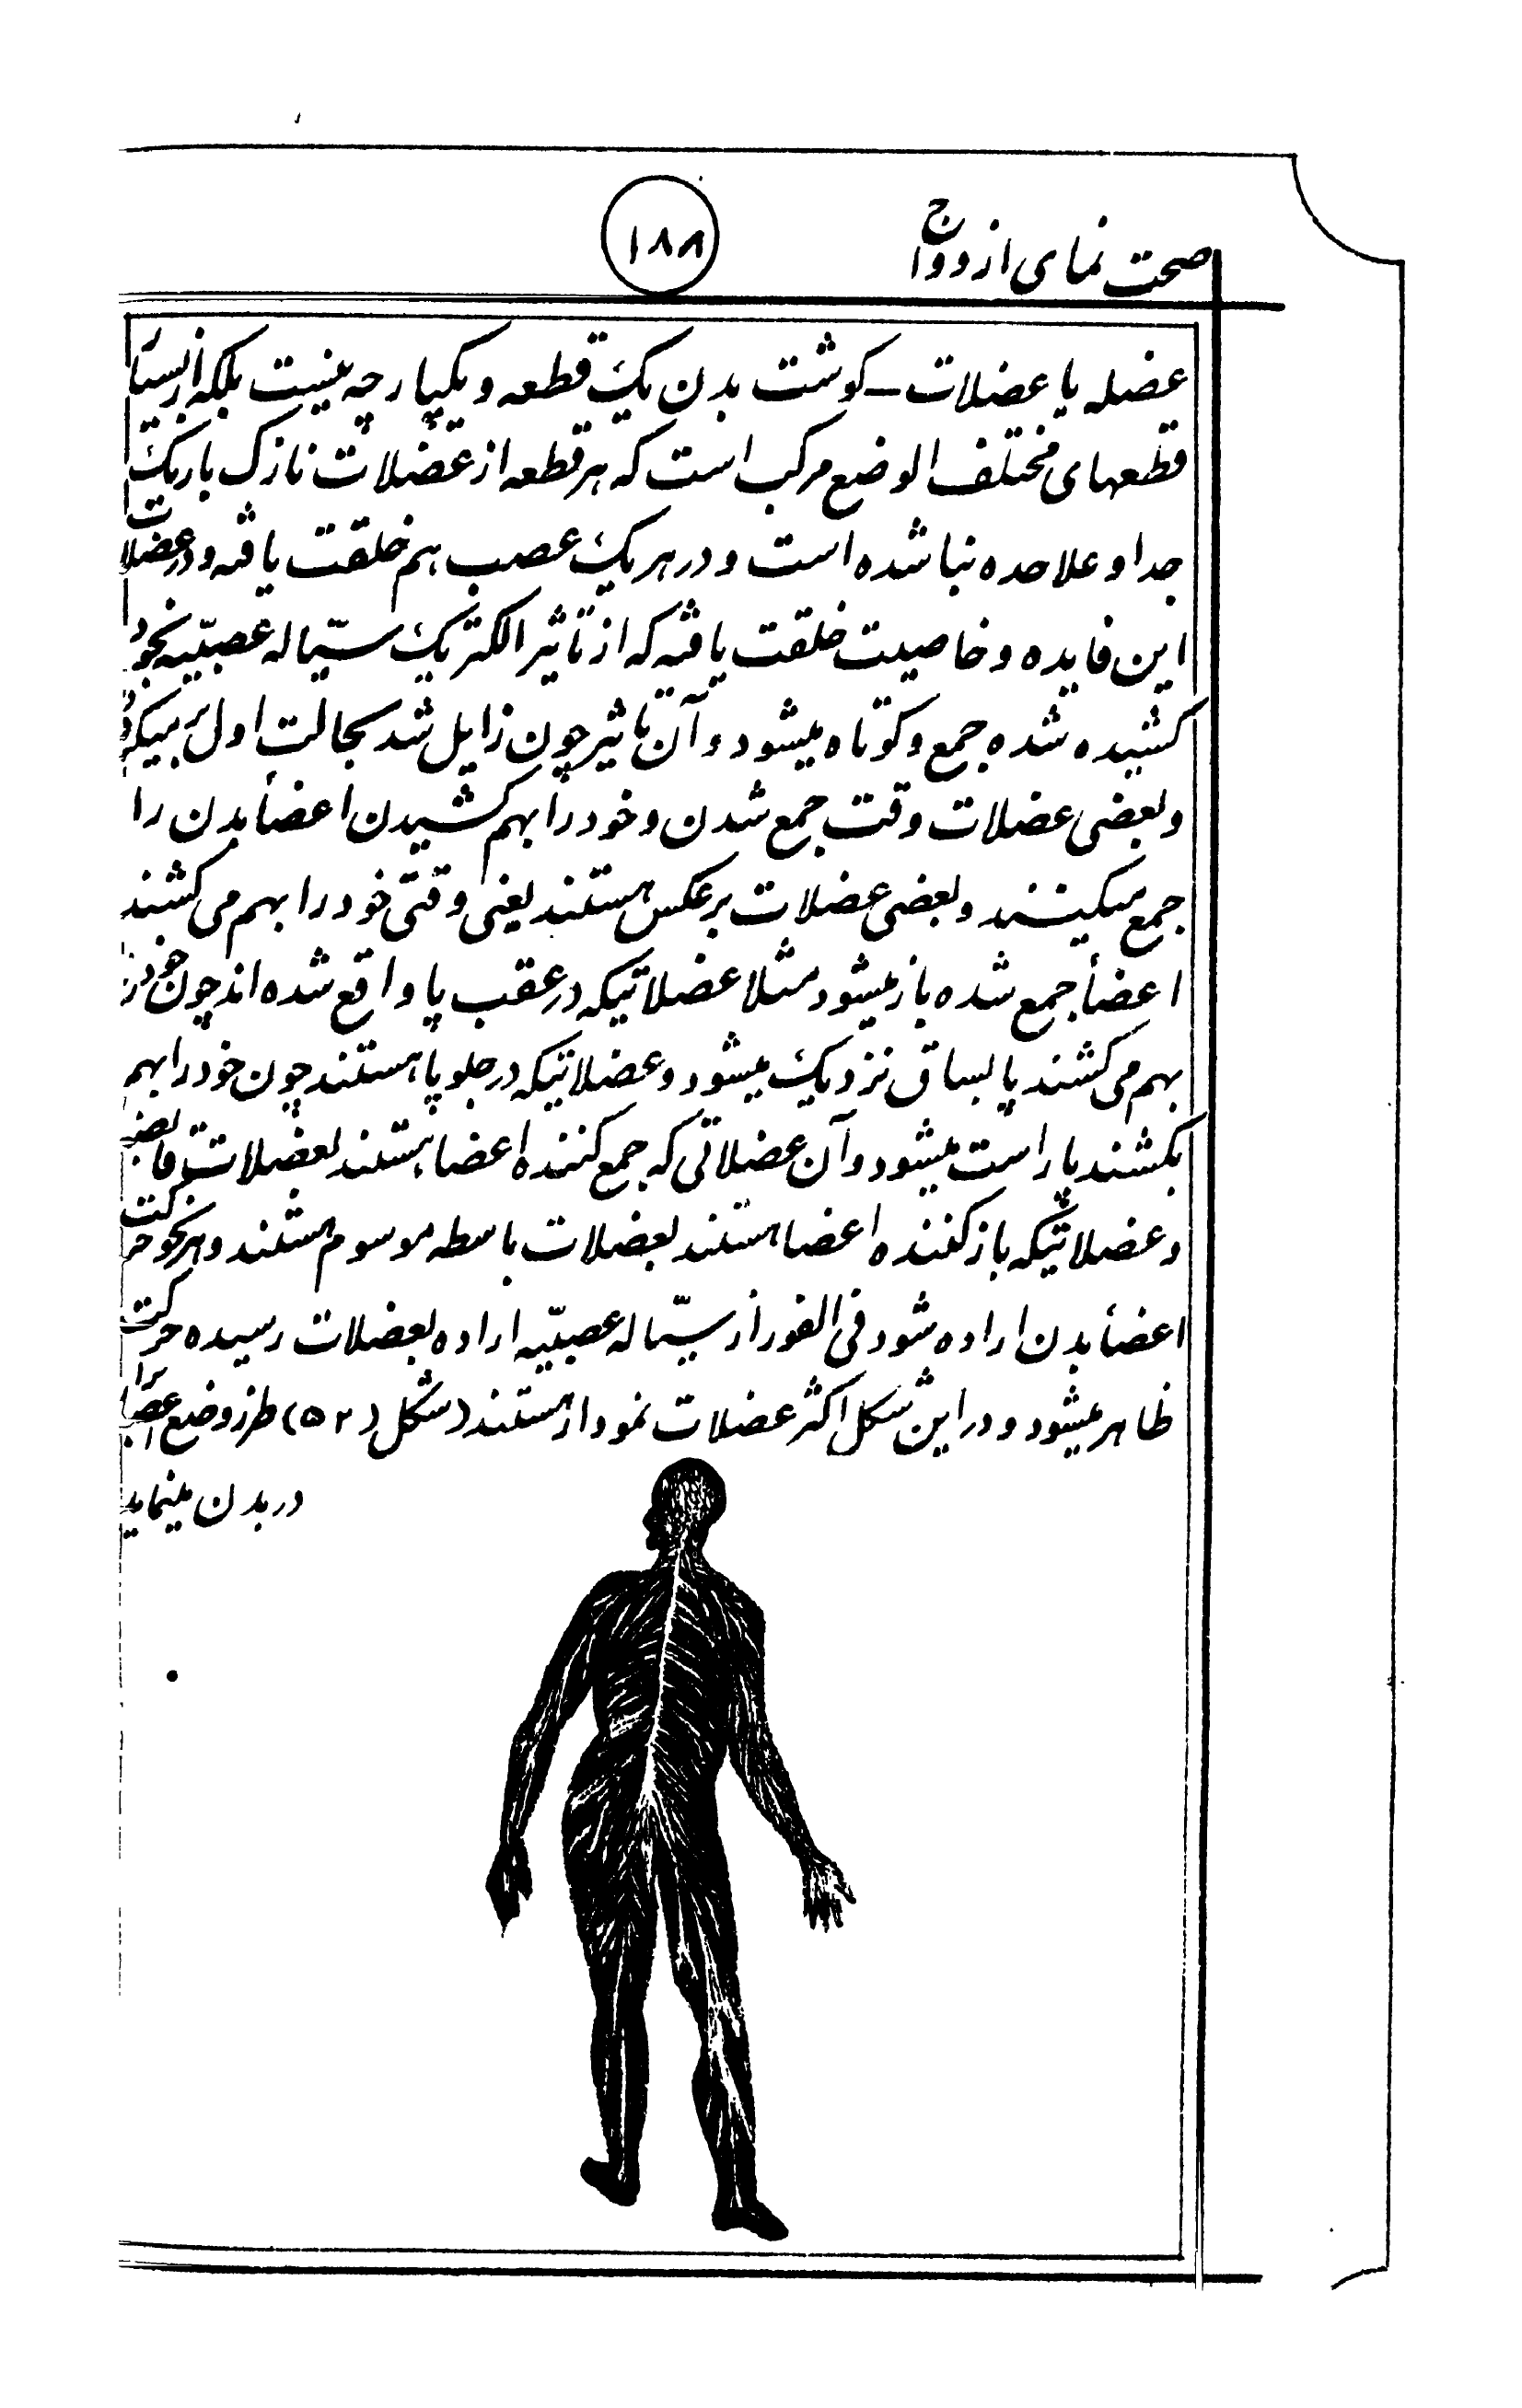 صحت نمای ازدواج
۱۸۸
عضله یا عضلات ـ کوشت بدن یک قطعه و یکپارچه نیست بلکه از بسیار
قطعهای مختلف الوضع مرکب است که هر قطعه از عضلات نازک باریک
جدا و علاحده بنا شده است و در هر یک عصب هم خلقت یافته و در عضلات
این فایده و خاصیت خلقت یافته که از تاثیر الکتریک سیّاله عصبیّه بخود
کشیده شده جمع و کوتاه میشود و آن تاثیر چون زایل شد بحالت اول بر میگردد
و بعضی عضلات وقت جمع شدن و خود را بهم کشیدن اعضأ بدن را
جمع میکنند و بعضی عضلات برعکس هستند یعنی وقتی خود را بهم می کشند
اعضأ جمع شده باز میشود مثلا عضلاتیکه در عقب پا واقع شده اند چون خود را
بهم می کشند پا بساق نزدیک میشود و عضلاتیکه در جلو پا هستند چون خود را بهم
بکشند پا راست میشود و آن عضلاتی که جمع کننده اعضا هستند بعضلات قابضه
و عضلاتیکه باز کننده اعضا هستند بعضلات باسطه موسوم هستند و هر نحو حرکت
اعضأ بدن اراده شود فی الفور از سیّاله عصبیّه اراده بعضلات رسیده حرکت
ظاهر میشود و در این شکل اکثر عضلات نمودار هستند (شکل (۵۲) طرز وضع
در بدن مینماید